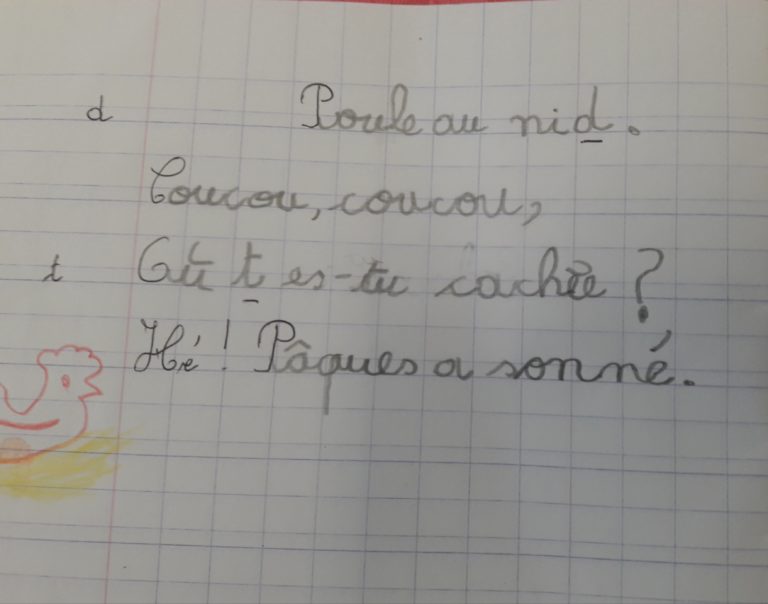 d Poule au nid.
Coucou, coucou,
t Où t es-tu cachée ?
Hé ! Pâques a sonné.